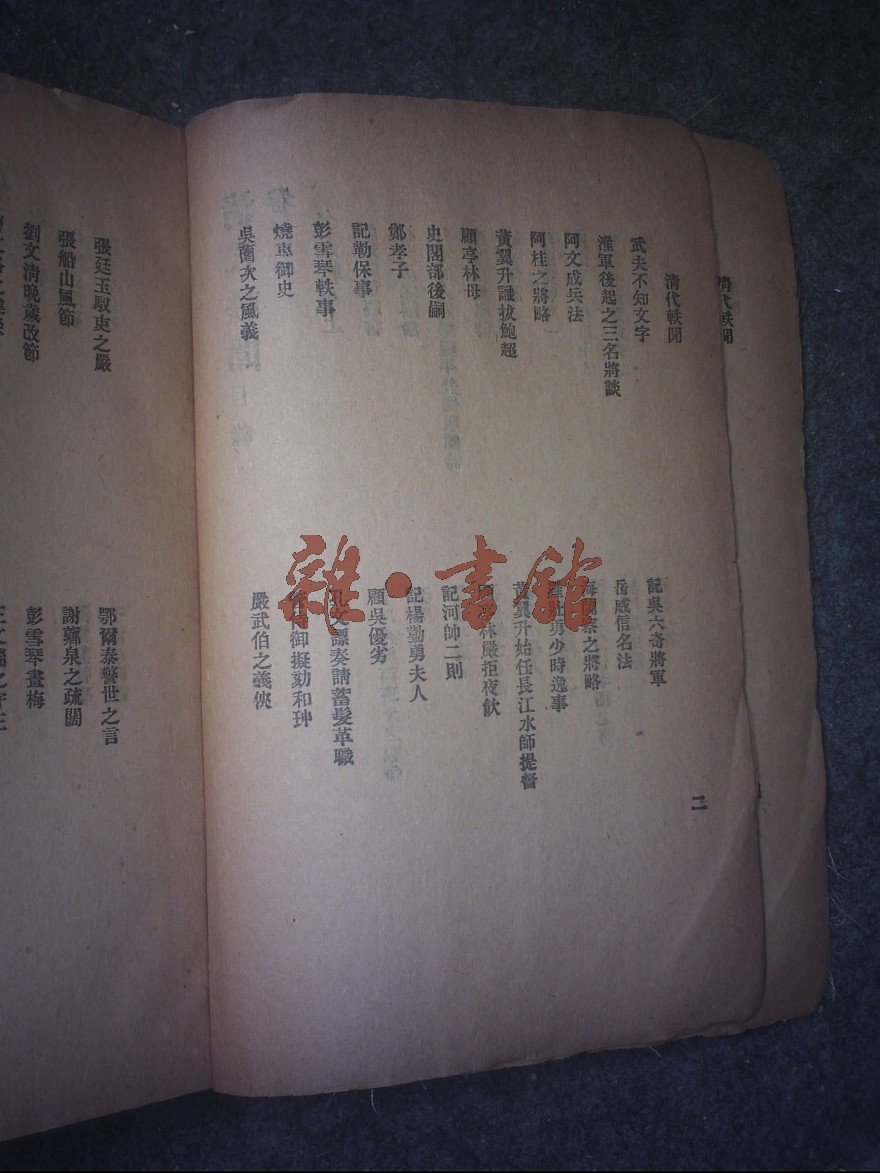 清代軼聞
清代軼聞
武夫不知文字
淮軍後起之三名將談
阿文成兵法
阿桂之將略
黃翼升識拔鮑超
顧亭林母
史閣部後嗣
鄭孝子
記勒保事
彭雪琴軼事
燒車御史
吳薗次之風義
記吳六奇將軍
岳威信名法
之將略
壯勇少時逸事
黃翼升始任長江水師提督
林嚴拒夜飲
記河帥二則
記楊勤勇夫人
顧吳優劣
孔文諤奏請蓄髮革職
侍御擬劾和珅
嚴武伯之義俠
二
張廷玉馭吏之嚴
張船山風節
劉文清晚歲改節
鄂爾泰警世之言
謝薌泉之疏闊
彭雪琴畫梅
雜·書館